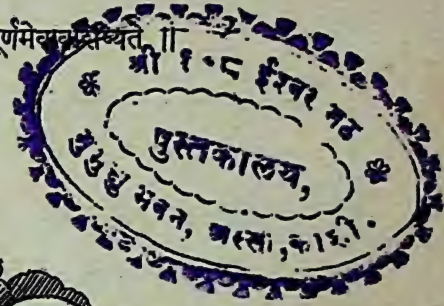 र्णमेवावशिष्यते ॥
श्री १०८ ईश्वर मठ
पुस्तकालय,
मुमुक्षु भवन, अस्सी, काशी.